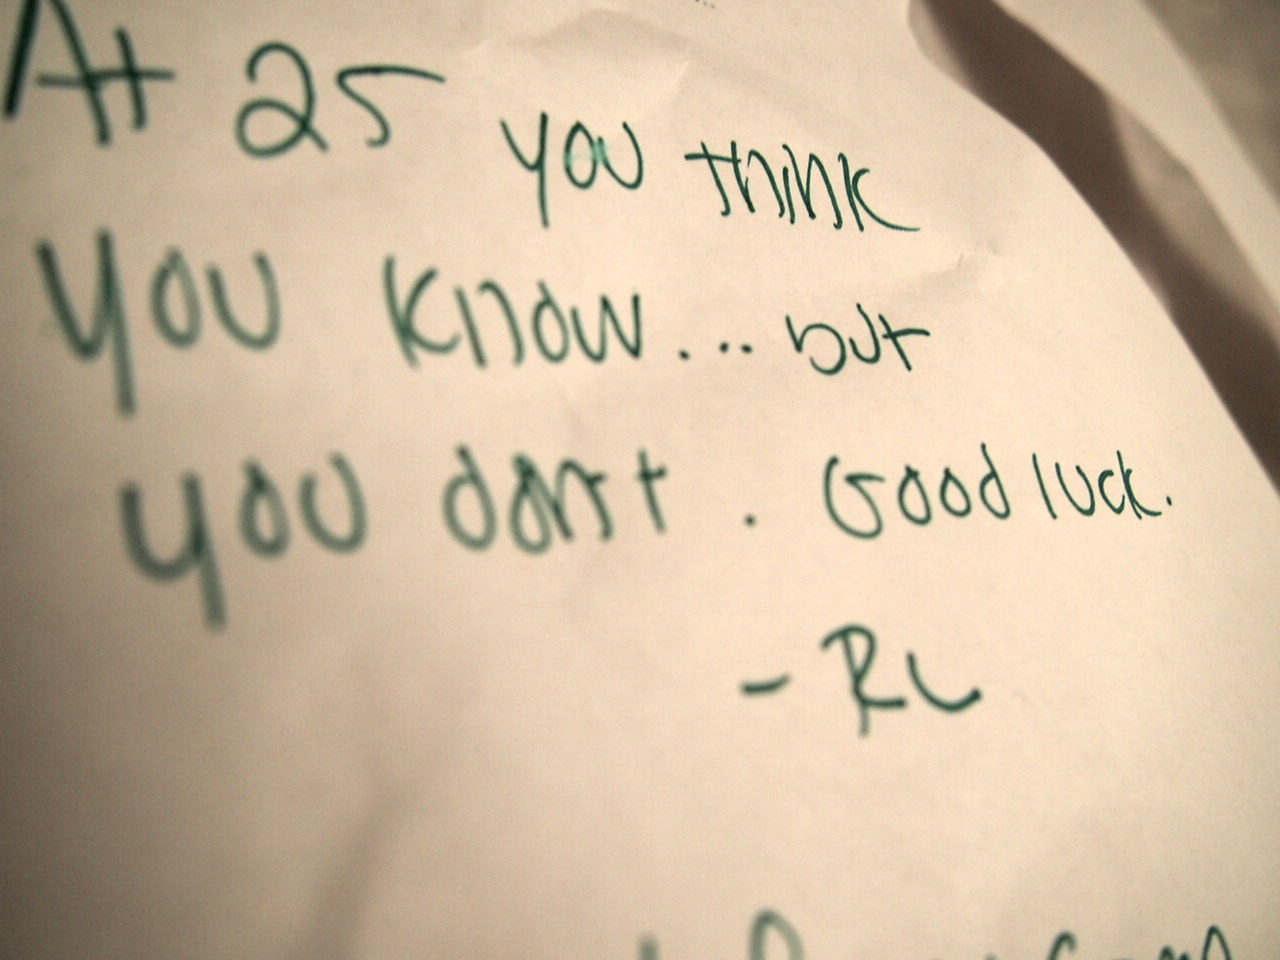 At 25 you think
you know... but
you don't. Good luck.
- RL